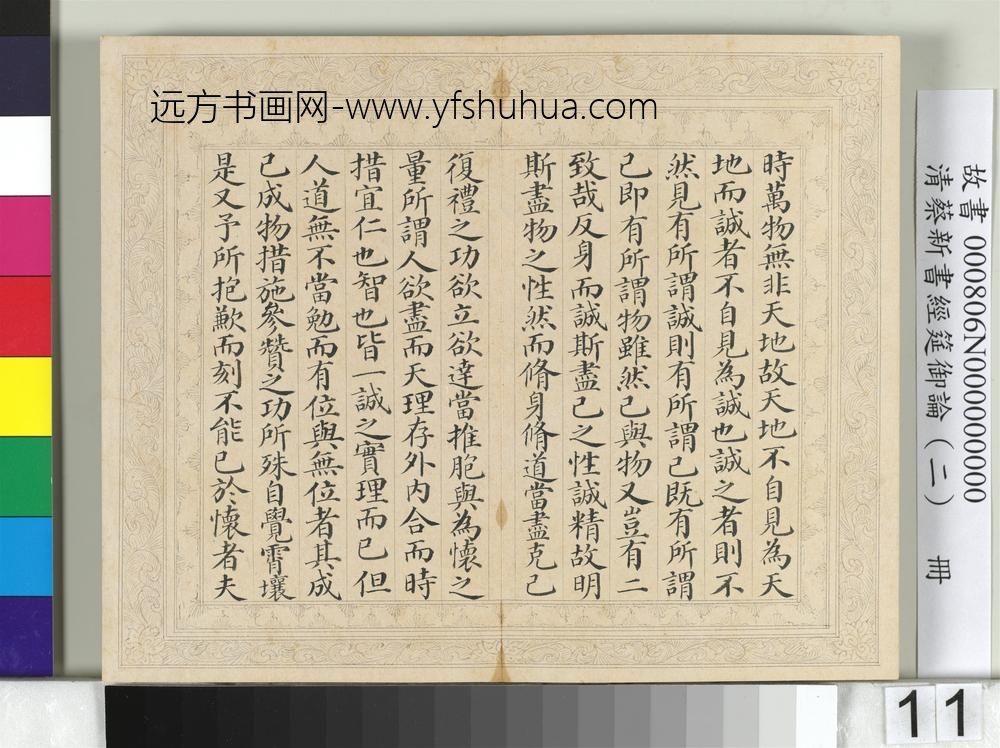 远方书画网-www.yfshuhua.com
時萬物無非天地故天地不自見為天
地而誠者不自見為誠也誠之者則不
然見有所謂誠則有所謂己既有所謂
己即有所謂物雖然己與物又豈有二
致哉反身而誠斯盡己之性誠精故明
斯盡物之性然而脩身脩道當盡克己
復禮之功欲立欲達當推胞與為懷之
量所謂人欲盡而天理存外内合而時
措宜仁也智也皆一誠之實理而已但
人道無不當勉而有位與無位者其成
己成物措施參贊之功所殊自覺霄壤
是又予所抱歉而刻不能已於懷者夫
故書 000806N000000000
清蔡新書經筵御論(二) 冊
11